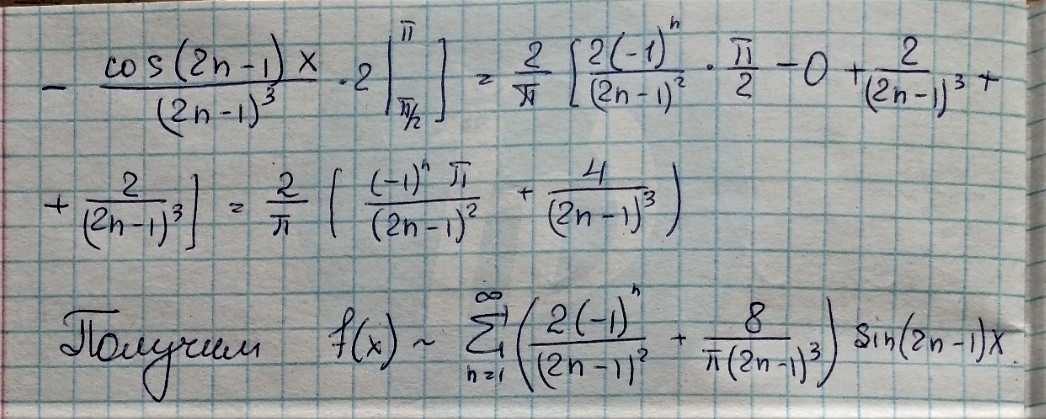 - cos(2n-1)x/(2n-1)³ · 2 |_{π/2}^{π} ] = 2/π [ 2(-1)ⁿ/(2n-1)² · π/2 - 0 + 2/(2n-1)³ +
+ 2/(2n-1)³ ] = 2/π [ (-1)ⁿ π/(2n-1)² + 4/(2n-1)³ )
Получим f(x) ~ ∑_{n=1}^{∞} ( 2(-1)ⁿ/(2n-1)² + 8/π(2n-1)³ ) sin(2n-1)x.